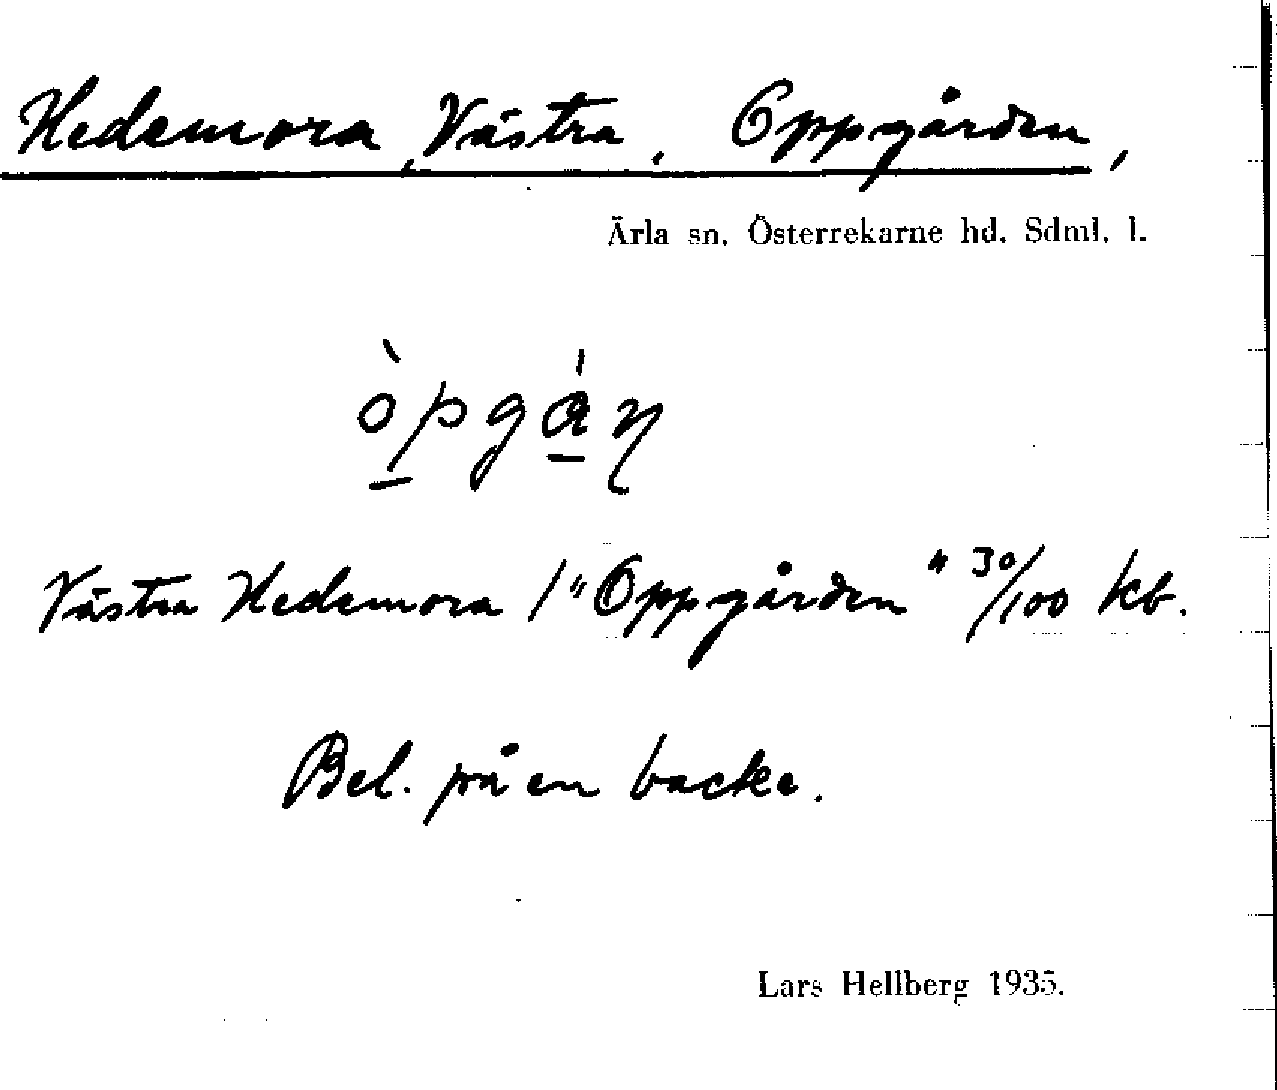 Hedemora, Västra, Oppgården,
Ärla sn. Österrekarne hd. Sdml. l.
Västra Hedemora / "Oppgården" 30/100 kb.
Bel. på en backe.
Lars Hellberg 1935.